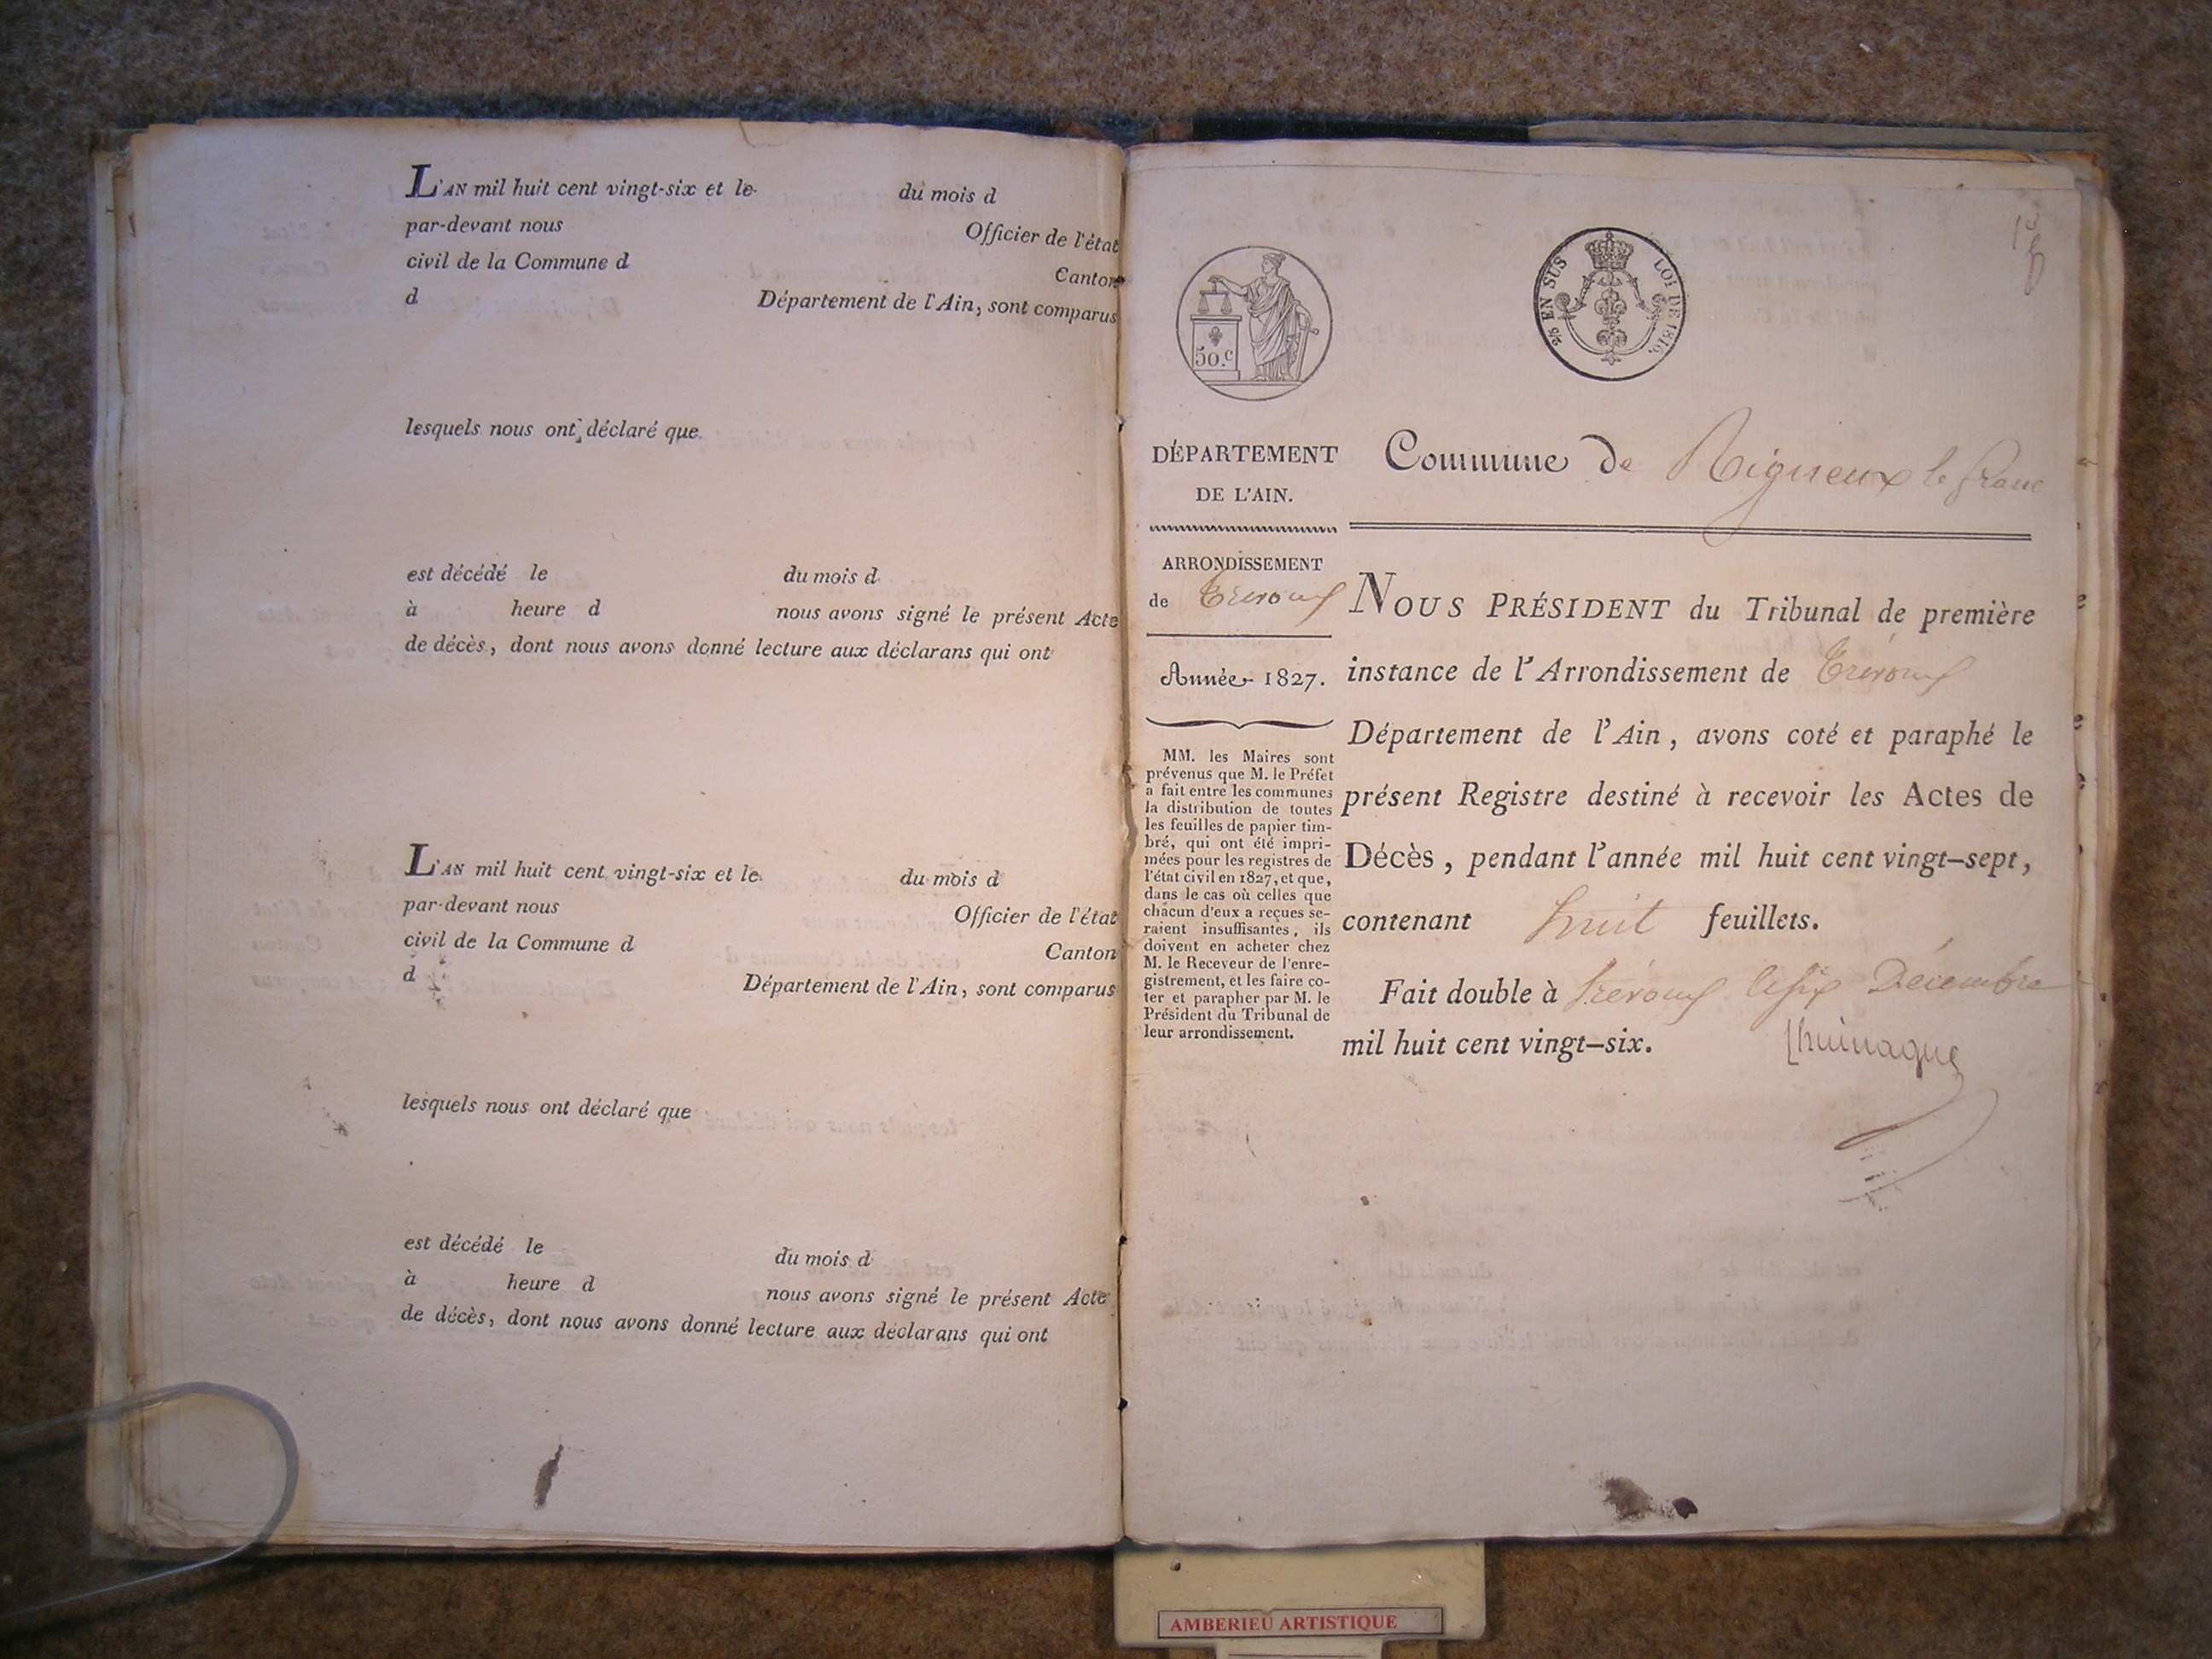 L'AN mil huit cent vingt-six et le du mois d
par-devant nous Officier de l'état
civil de la Commune d Canton
d Département de l'Ain, sont comparus
lesquels nous ont déclaré que
est décédé le du mois d
à heure d nous avons signé le présent Acte
de décès, dont nous avons donné lecture aux déclarans qui ont
L'AN mil huit cent vingt-six et le du mois d
par-devant nous Officier de l'état
civil de la Commune d Canton
d Département de l'Ain, sont comparus
lesquels nous ont déclaré que
est décédé le du mois d
à heure d nous avons signé le présent Acte
de décès, dont nous avons donné lecture aux déclarans qui ont
50.c
EN SUS LOI DE 1816.
DÉPARTEMENT
DE L'AIN.
Commune de Rigneux le franc
ARRONDISSEMENT
de Trévoux
Année 1827.
MM. les Maires sont
prévenus que M. le Préfet
a fait entre les communes
la distribution de toutes
les feuilles de papier tim-
bré, qui ont été impri-
mées pour les registres de
l'état civil en 1827, et que,
dans le cas où celles que
chacun d'eux a reçues se-
raient insuffisantes, ils
doivent en acheter chez
M. le Receveur de l'enre-
gistrement, et les faire co-
ter et parapher par M. le
Président du Tribunal de
leur arrondissement.
NOUS PRÉSIDENT du Tribunal de première
instance de l'Arrondissement de Trévoux
Département de l'Ain, avons coté et paraphé le
présent Registre destiné à recevoir les Actes de
Décès, pendant l'année mil huit cent vingt-sept,
contenant huit feuillets.
Fait double à Trévoux le six Décembre
mil huit cent vingt-six.
AMBERIEU ARTISTIQUE